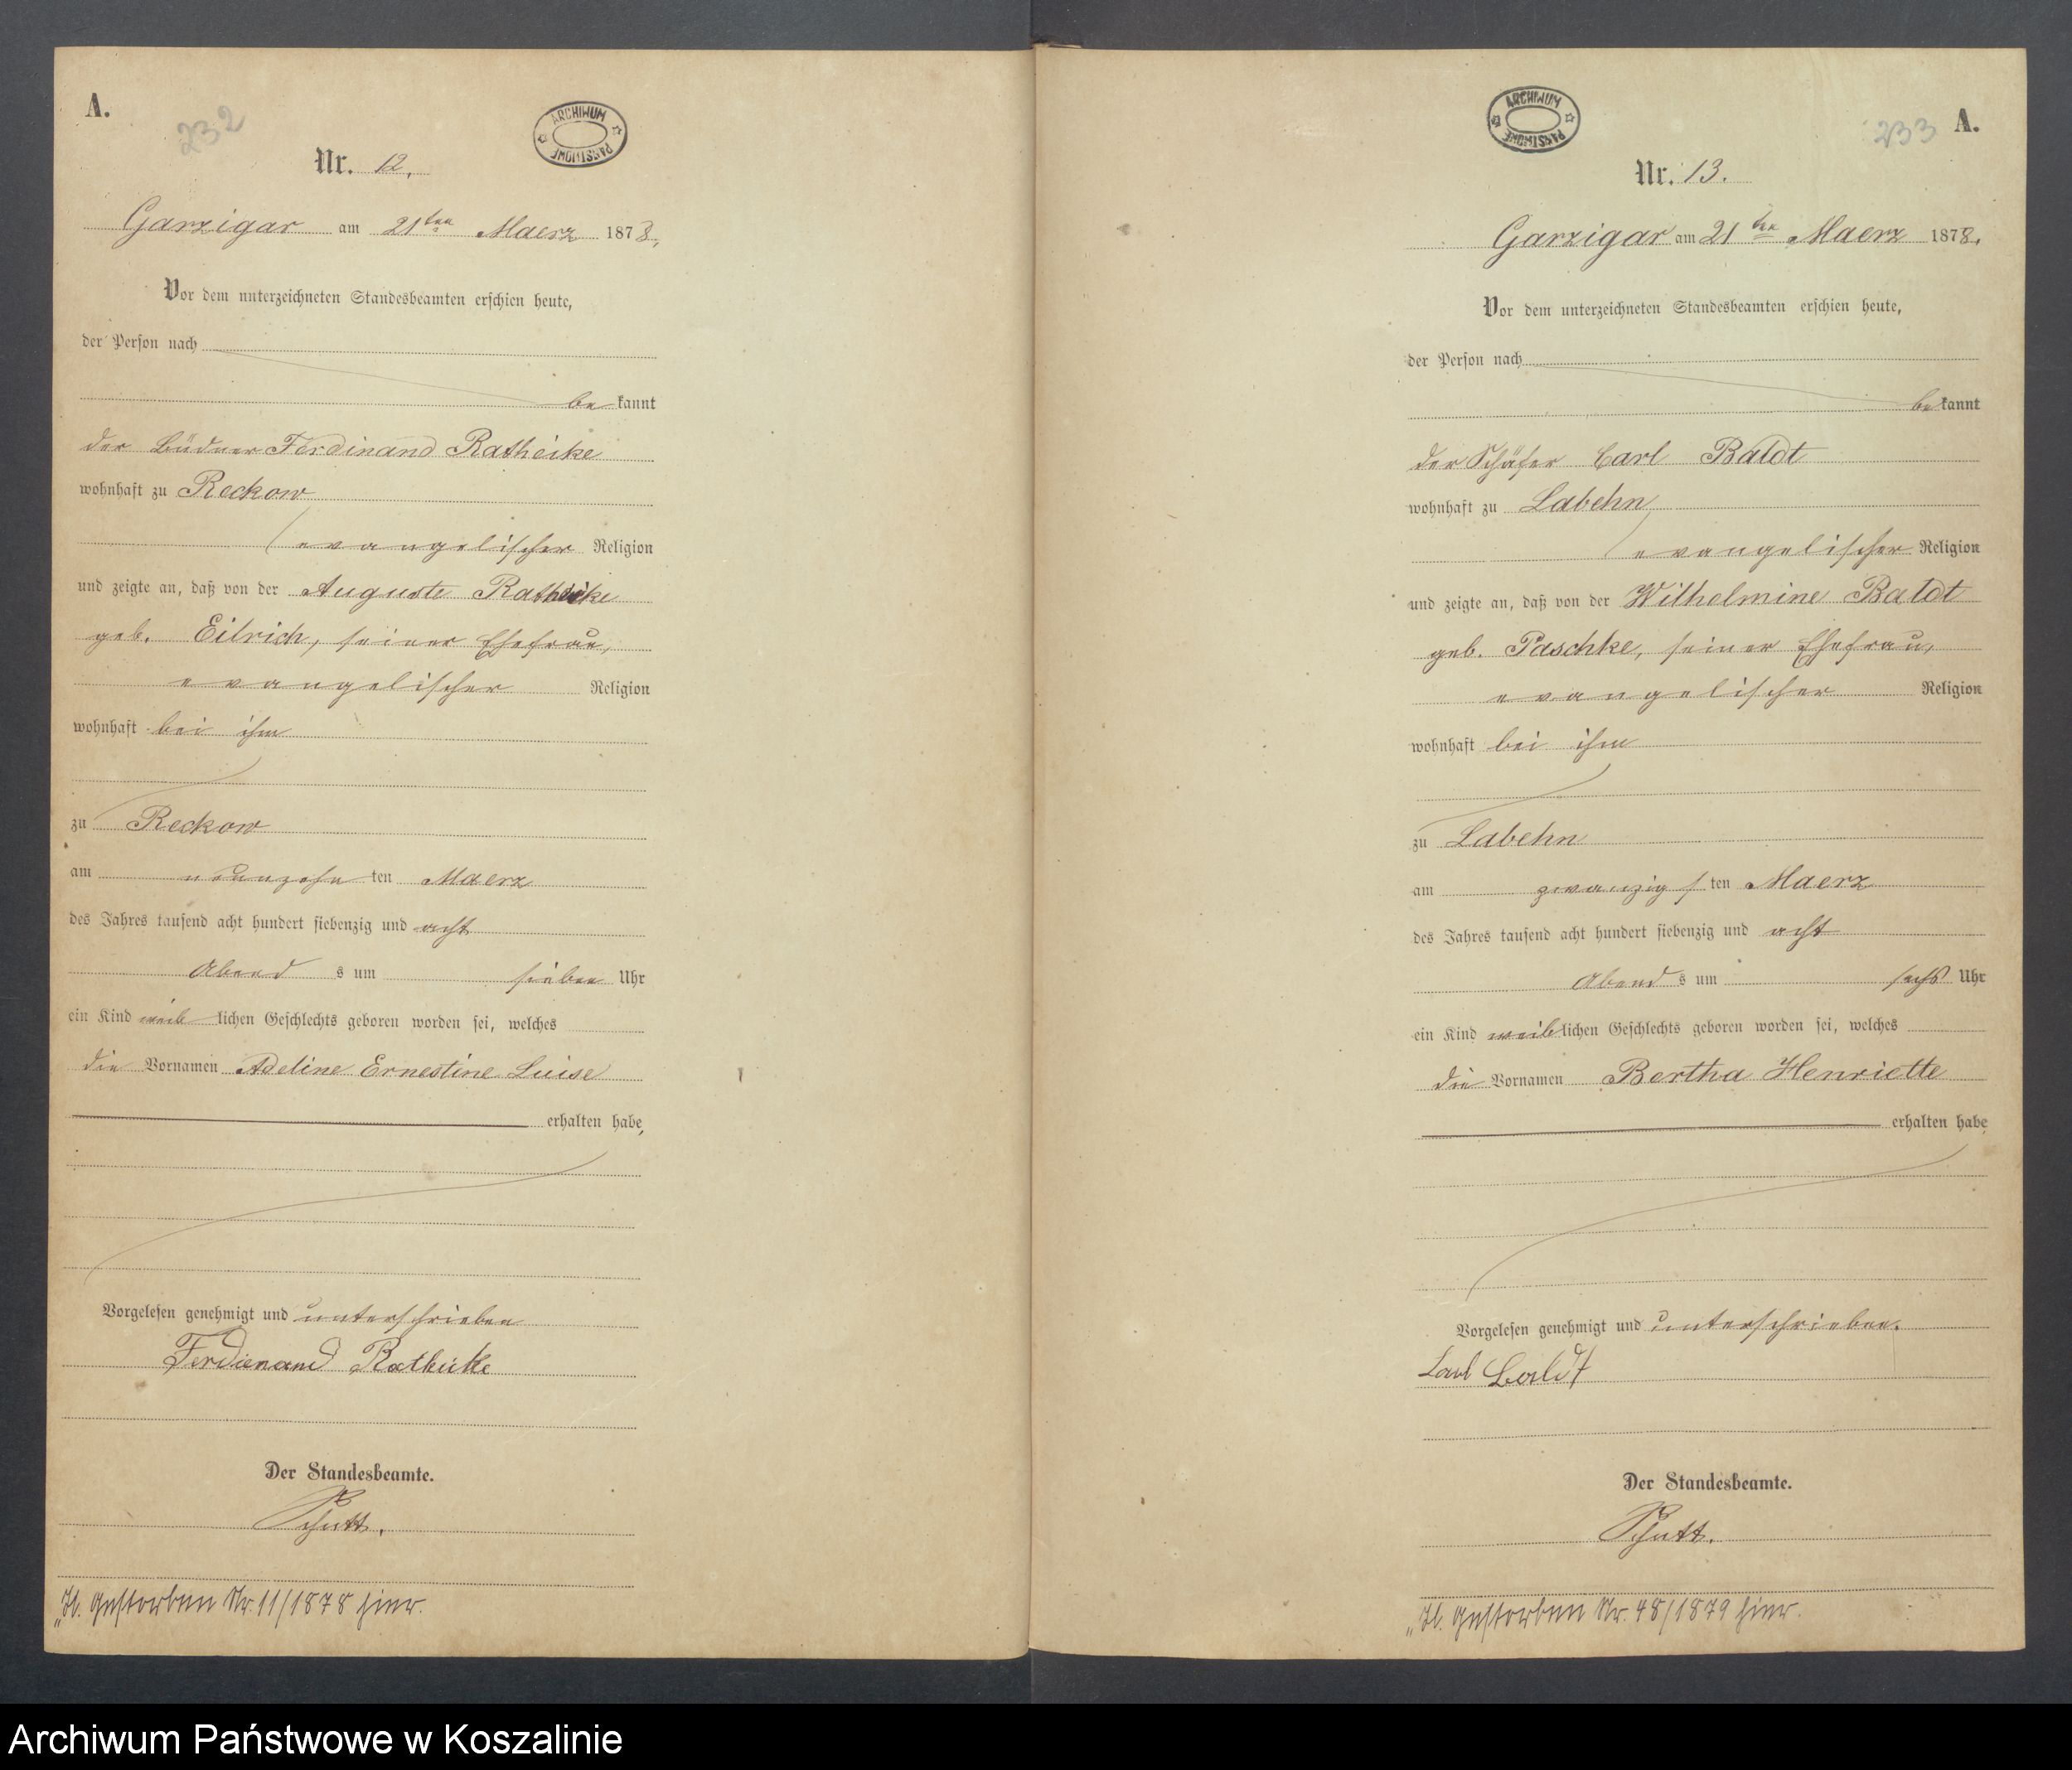 A.
232
ARCHIWUM PAŃSTWOWE
Nr. 12.
Garzigar am 21ten Maerz 1878,
Vor dem unterzeichneten Standesbeamten erschien heute,
der Person nach
be kannt
der Büdner Ferdinand Ratheike
wohnhaft zu Reckow
evangelischer Religion
und zeigte an, daß von der Auguste Ratheike
geb. Eilrich, seiner Ehefrau,
evangelischer Religion
wohnhaft bei ihm
zu Reckow
am neunzehn ten Maerz
des Jahres tausend acht hundert siebenzig und acht
Abend s um sieben Uhr
ein Kind weib lichen Geschlechts geboren worden sei, welches
die Vornamen Adeline Ernestine Luise
erhalten habe,
Vorgelesen genehmigt und unterschrieben
Ferdienand Ratheike
Der Standesbeamte.
Schutt.
„Kl. Gestorben Nr. 11/1878 hier.
ARCHIWUM PAŃSTWOWE
233
A.
Nr. 13.
Garzigar am 21ten Maerz 1878.
Vor dem unterzeichneten Standesbeamten erschien heute,
der Person nach
be kannt
der Schäfer Carl Baldt
wohnhaft zu Labehn
evangelischer Religion
und zeigte an, daß von der Wilhelmine Baldt
geb. Paschke, seiner Ehefrau,
evangelischer Religion
wohnhaft bei ihm
zu Labehn
am zwanzigs ten Maerz
des Jahres tausend acht hundert siebenzig und acht
Abend s um sechs Uhr
ein Kind weib lichen Geschlechts geboren worden sei, welches
die Vornamen Bertha Henriette
erhalten habe
Vorgelesen genehmigt und unterschrieben.
Carl Baldt
Der Standesbeamte.
Schutt.
„Kl. Gestorben Nr. 48/1879 hier.
Archiwum Państwowe w Koszalinie